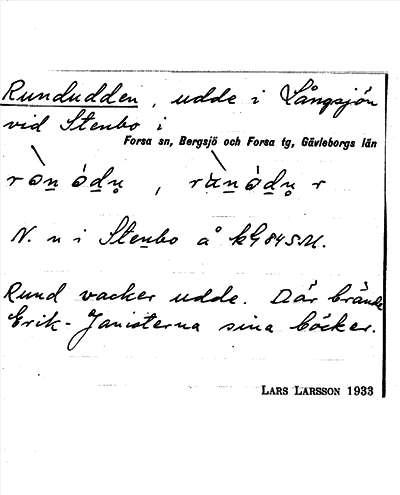 Rundudden, udde i Långsjön
vid Stenbo i
Forsa sn, Bergsjö och Forsa tg, Gävleborgs län
N. n i Stenbo å kG 84 S.M.
Rund vacker udde. Där brände
Erik-Jansterna sina böcker.
LARS LARSSON 1933